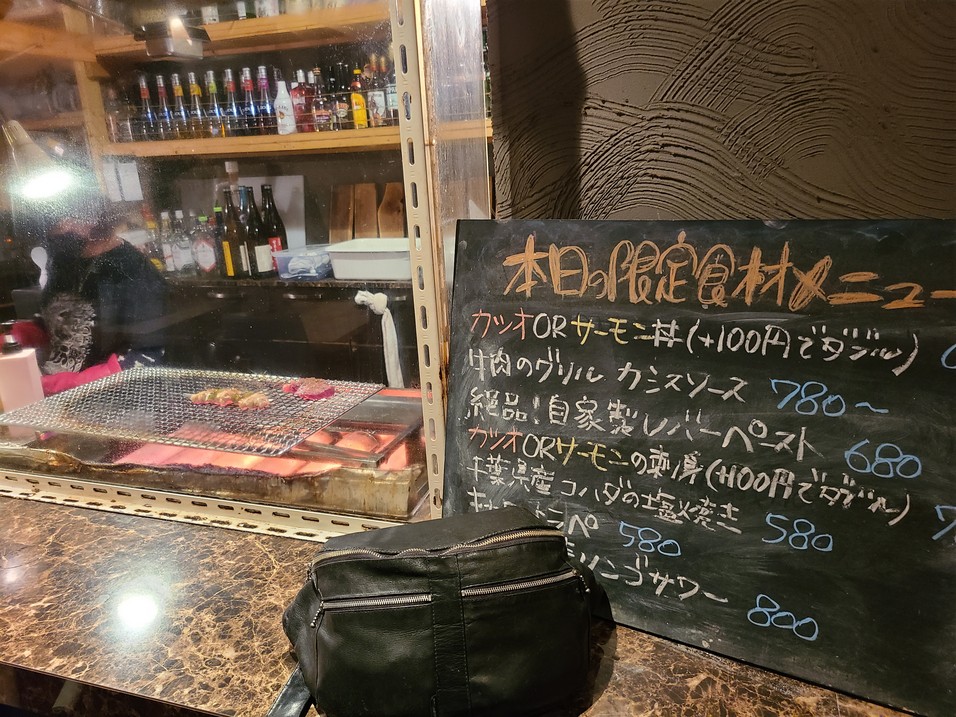 本日の限定食材メニュー
カツオORサーモン丼(+100円でダブル)
牛肉のグリル カシスソース 780~
絶品!自家製レバーペースト 680
カツオORサーモンの刺身(+100円でダブル)
千葉県産コハダの塩焼き 580
580
ンゴサワー 800